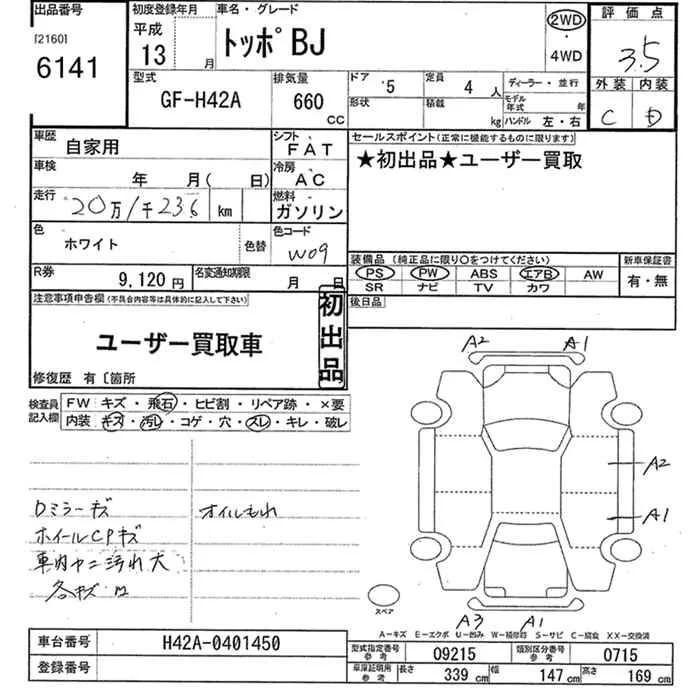 出品番号 初度登録年月 車名・グレード 評価点
[2160] 平成 トッポBJ 2WD
6141 13 月 ・4WD 3.5
型式 排気量 ドア 5 定員 4人 ディーラー・並行 外装 内装
GF-H42A 660 CC 形状 積載 kg モデル年式 年 C D
ハンドル 左・右
車歴 自家用 シフト FAT セールスポイント(正常に機能するものに限ります)
車検 年 月( 日) 冷房 AC ★初出品★ユーザー買取
走行 20万/千236 km 燃料 ガソリン
色 ホワイト 色替 色コード W09
装備品(純正品に限り○をつけてください) 新車保証書
R券 9,120円 名変通知期限 月 日 PS PW ABS エアB AW 有・無
SR ナビ TV カワ
注意事項申告欄(不具合内容等は具体的に記入して下さい) 初出品 後日品
ユーザー買取車
修復歴 有〔箇所
検査員記入欄 FW キズ・飛石・ヒビ割・リペア跡・×要
内装 キズ・汚レ・コゲ・穴・スレ・キレ・破レ
A2 A1
A2
A1
Dミラーキズ オイルもれ
ホイールCPキズ
車内ヤニ汚れ大
各キズ凹
スペア
A3 A1
A-キズ E-エクボ U-凹み W-補修跡 S-サビ C-腐食 XX-交換済
車台番号 H42A-0401450 型式指定番号 参考 09215 類別区分番号 参考 0715
登録番号 車庫証明用 参考 長さ 339cm 幅 147cm 高さ 169cm